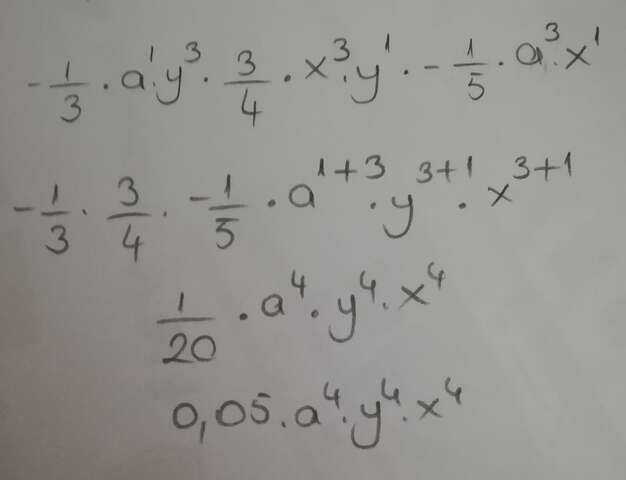 -1/3 · a¹ · y³ · 3/4 · x³ · y¹ · -1/5 · a³ · x¹
-1/3 · 3/4 · -1/5 · a¹⁺³ · y³⁺¹ · x³⁺¹
1/20 · a⁴ · y⁴ · x⁴
0,05 · a⁴ · y⁴ · x⁴